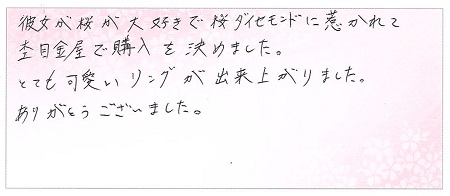 彼女が桜が大好きで桜ダイヤモンドに惹かれて
杢目金屋で購入を決めました。
とても可愛いリングが出来上がりました。
ありがとうございました。